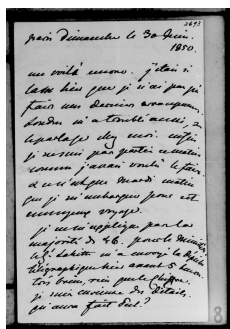 2693
Paris Dimanche le 30 Juin.
1850.
me voilà encore. j'étais si
lasse hier que je n'ai pas pu
faire mes derniers arrangemens
Londres m'a troublé aussi,
chez moi. enfin
je ne suis pas partie ce matin
comme j'avais voulu le faire
mardi matin
que je m'embarque pour cet
ennuyeux voyage.
je m'explique par la
majorité de 46. pour le
télégraphique hier avant 5 heures.
très bien, rien que le chiffre.
je suis curieuse des détails.
qu'aura fait Peel?
8